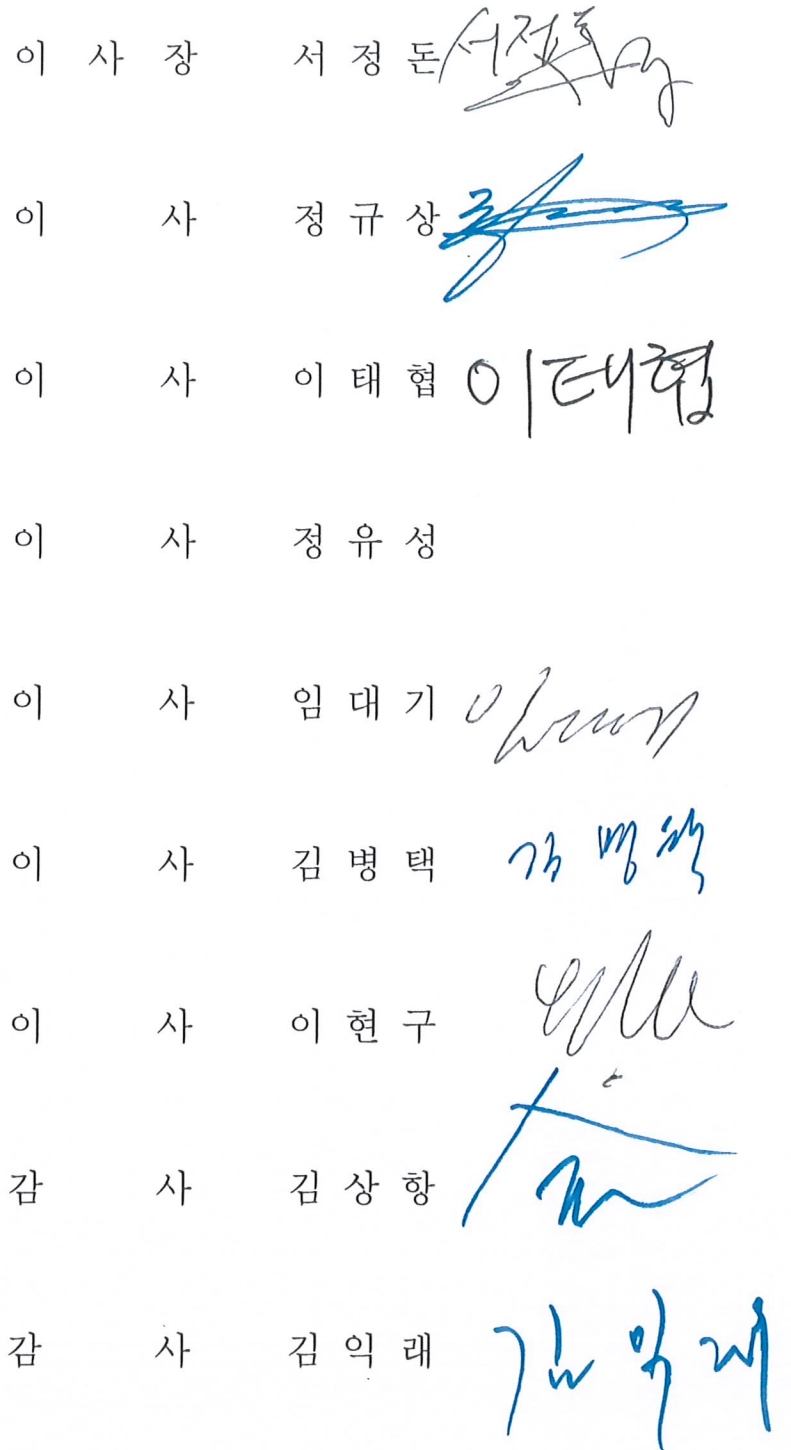 이 사 장 서 정 돈 서정돈
이 사 정 규 상
이 사 이 태 협 이태협
이 사 정 유 성
이 사 임 대 기
이 사 김 병 택 김병택
이 사 이 현 구
감 사 김 상 항
감 사 김 익 래 김익래